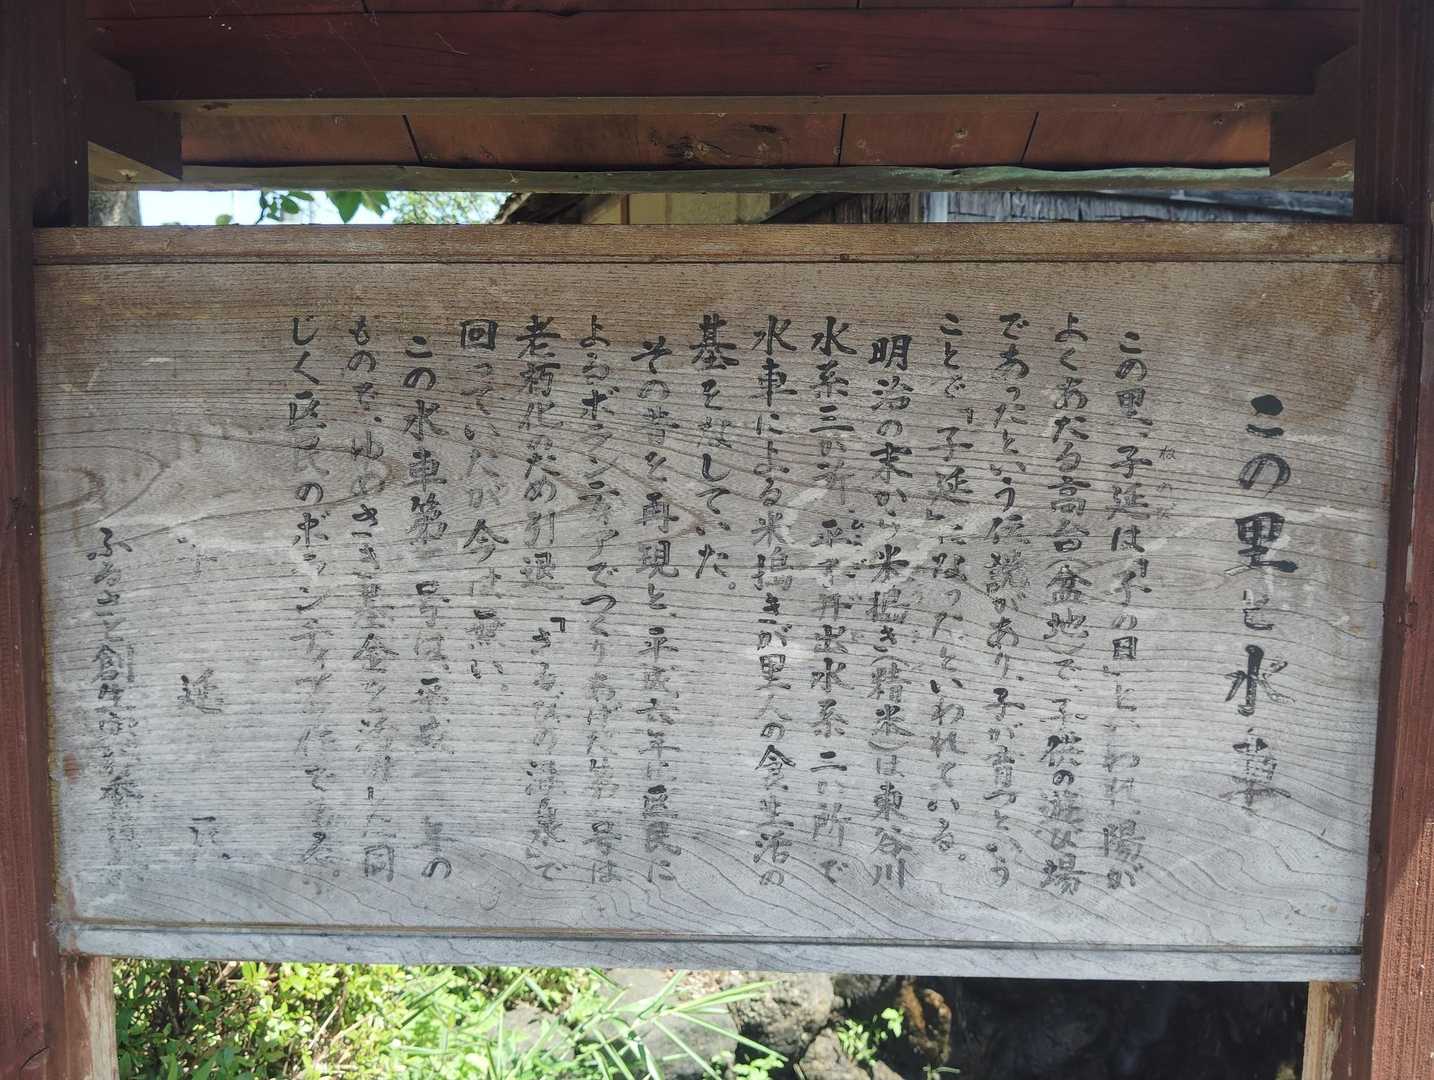 この里と水車
この里、子延は「子の日」といわれ、陽が
よくあたる高台(盆地)で、子供の遊び場
であったという伝説があり、子が育つという
ことで「子延」になったといわれている。
明治の末から米搗き(精米)は東谷川
水系三か所、平子井出水系二か所で
水車による米搗きが里人の食生活の
基をなしていた。
その昔を再現と、平成六年に区民に
よるボランティアでつくりあげた第一号は
老朽化のため引退、「さるびの温泉」で
回っていたが今は無い。
この水車第二号は、平成 年の
もので、ゆめさき基金を活用した同
じく区民のボランティア作である。
子延区
ふるさと創生